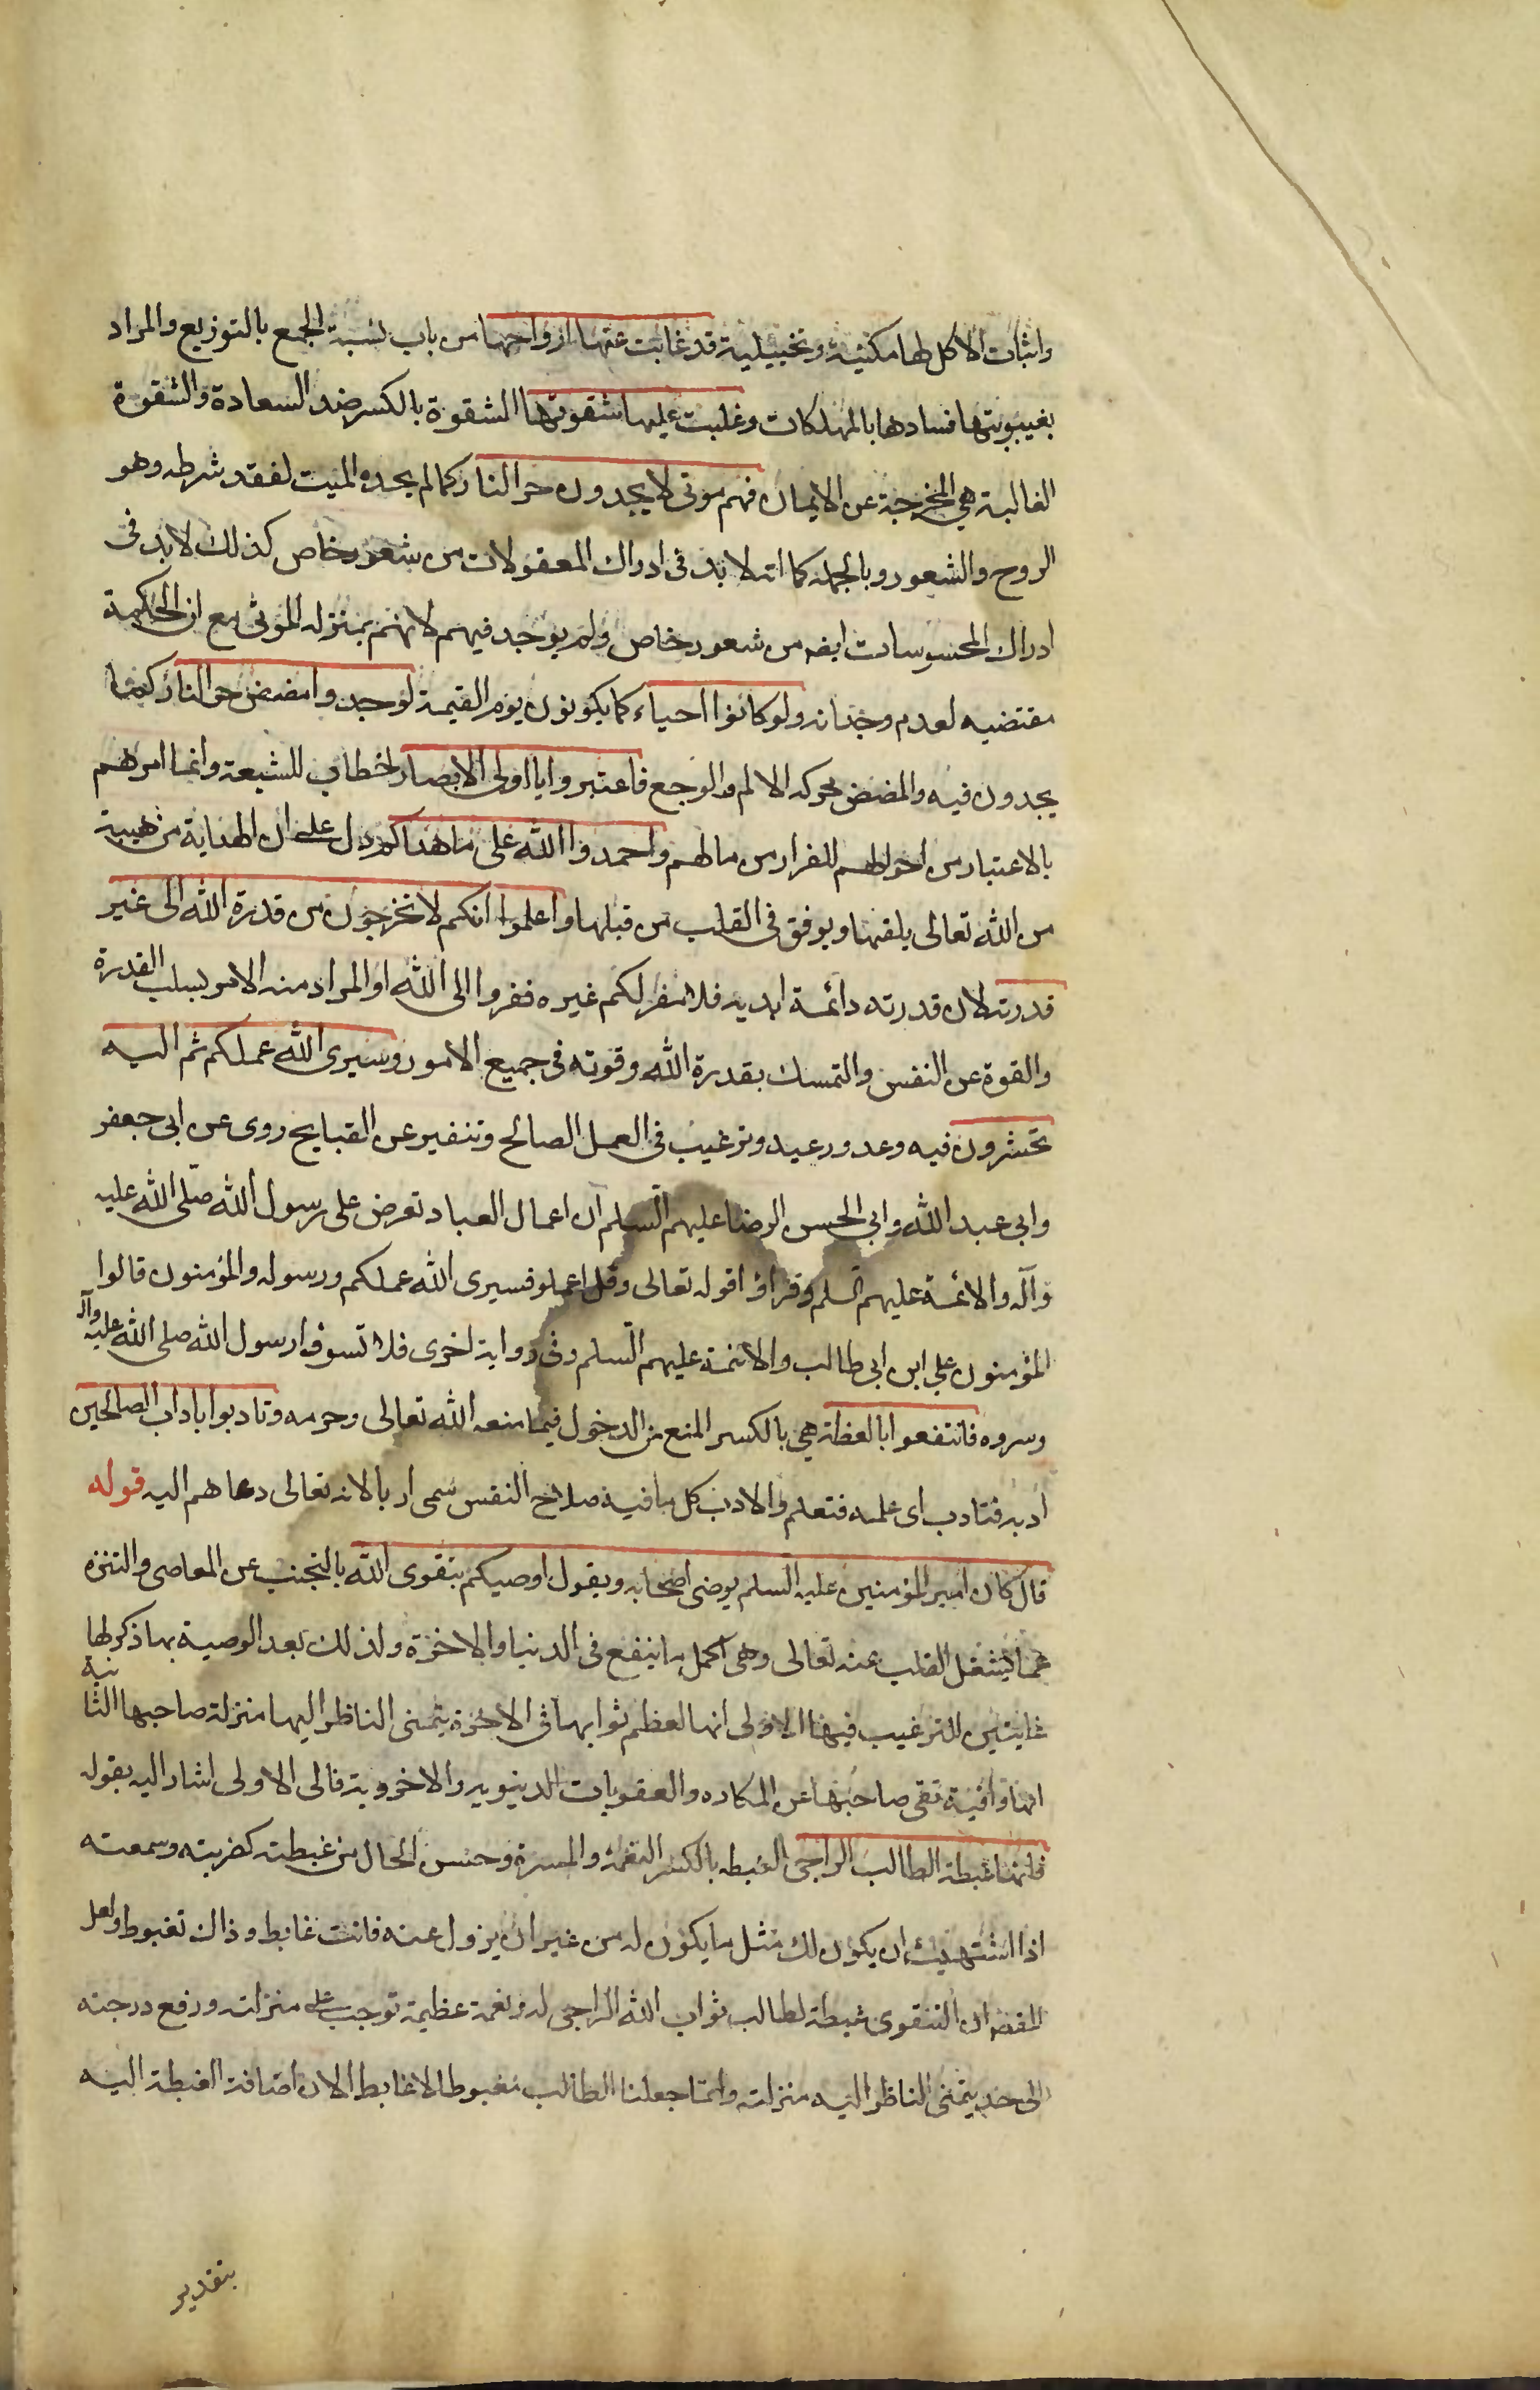 واثبات الاكل لها مكنية وتخييلية قد غابت عنها ارواحها من باب نسبة الجمع بالتوزيع والمراد
بغيبوبتها فسادها بالمهلكات وغلبت عليها شقوتها الشقوة بالكسر ضد السعادة والشقوة
الغالبة هي المخرجة عن الايمان فهم موتى لا يجدون حر النار كما لم يجده الميت لفقد شرطه وهو
الروح والشعور وبالجمله كما انه لا بد فى ادراك المعقولات من شعور خاص كذلك لا بد فى
ادراك المحسوسات ايضه من شعور خاص ولم يوجد فيهم لانهم بمنزله الموتى مع ان الحكمة
مقتضيه لعدم وجدانه ولو كانوا احياء كما يكونون يوم القيمة لوجدوا مضض حر النار كما
يجدون فيه والمضض محركه الالم والوجع فاعتبروا يا اولى الابصار خطاب للشيعة وانما امرهم
بالاعتبار من احوالهم للفرار من مالهم واحمدوا الله على ما هداكم دل على ان الهداية موهبية
من الله تعالى يلقيها ويوفق فى القلب من قبلها واعلموا انكم لا تخرجون من قدرة الله الى غير
قدرته لان قدرته دائمة ابديه فلا مفر لكم غيره ففروا الى الله او المراد منه الامر بسلب القدرة
والقوة عن النفس والتمسك بقدرة الله وقوته فى جميع الامور وسيرى الله عملكم ثم اليه
تحشرون فيه وعد ووعيد وترغيب فى العمل الصالح وتنفير عن القبايح روى عن ابى جعفر
وابى عبد الله وابى الحسن الرضا عليهم السلم ان اعمال العباد تعرض على رسول الله صلى الله عليه
وآله والائمة عليهم السلم وقراؤا قوله تعالى وقل اعملو فسيرى الله عملكم ورسوله والمؤمنون قالوا
المؤمنون على ابن ابى طالب والائمة عليهم السلم وفى رواية اخرى فلا تسوؤا رسول الله صلى الله عليه وآله
وسروه فانتفعوا بالعظة هى بالكسر المنع من الدخول فيما منعه الله تعالى وحرمه وتادبوا باداب الصالحين
ادبه فتادب اى علمه فتعلم والادب كل ما فيه صلاح النفس سمى اربا لانه تعالى دعاهم اليه قوله
قال كان امير المؤمنين عليه السلم يوصى اصحابه ويقول اوصيكم بتقوى الله بالتجنب عن المعاصى والتنزه
عما يشغل القلب عنه تعالى وهى اكمل ما ينفع فى الدنيا والاخرة ولذلك بعد الوصية بها ذكر لها
غايتين للترغيب فيها الاولى انها لعظم ثوابها فى الاخرة يتمنى الناظر اليها منزلة صاحبها الثانية
انها واقية تقى صاحبها عن المكاره والعقوبات الدينويه والاخروية فالى الاولى اشار اليه بقوله
فانها غبطة الطالب الراجى الغبطه بالكسر النعمة والمسرة وحسن الحال من غبطته كضربته وسمعته
اذا اشتهيت ان يكون لك مثل ما يكون له من غير ان يزول عنه فانت غابط وذاك تغبوط ولعل
المقصه ان التقوى غبطة لطالب ثواب الله الراجى له ونعمة عظيمة توجب على منزلته ورفع درجته
الى حد يتمنى الناظر اليه منزلته وانما جعلنا الطالب مغبوطا لا غابطا لان اضافة الغبطة اليه
بتقدير